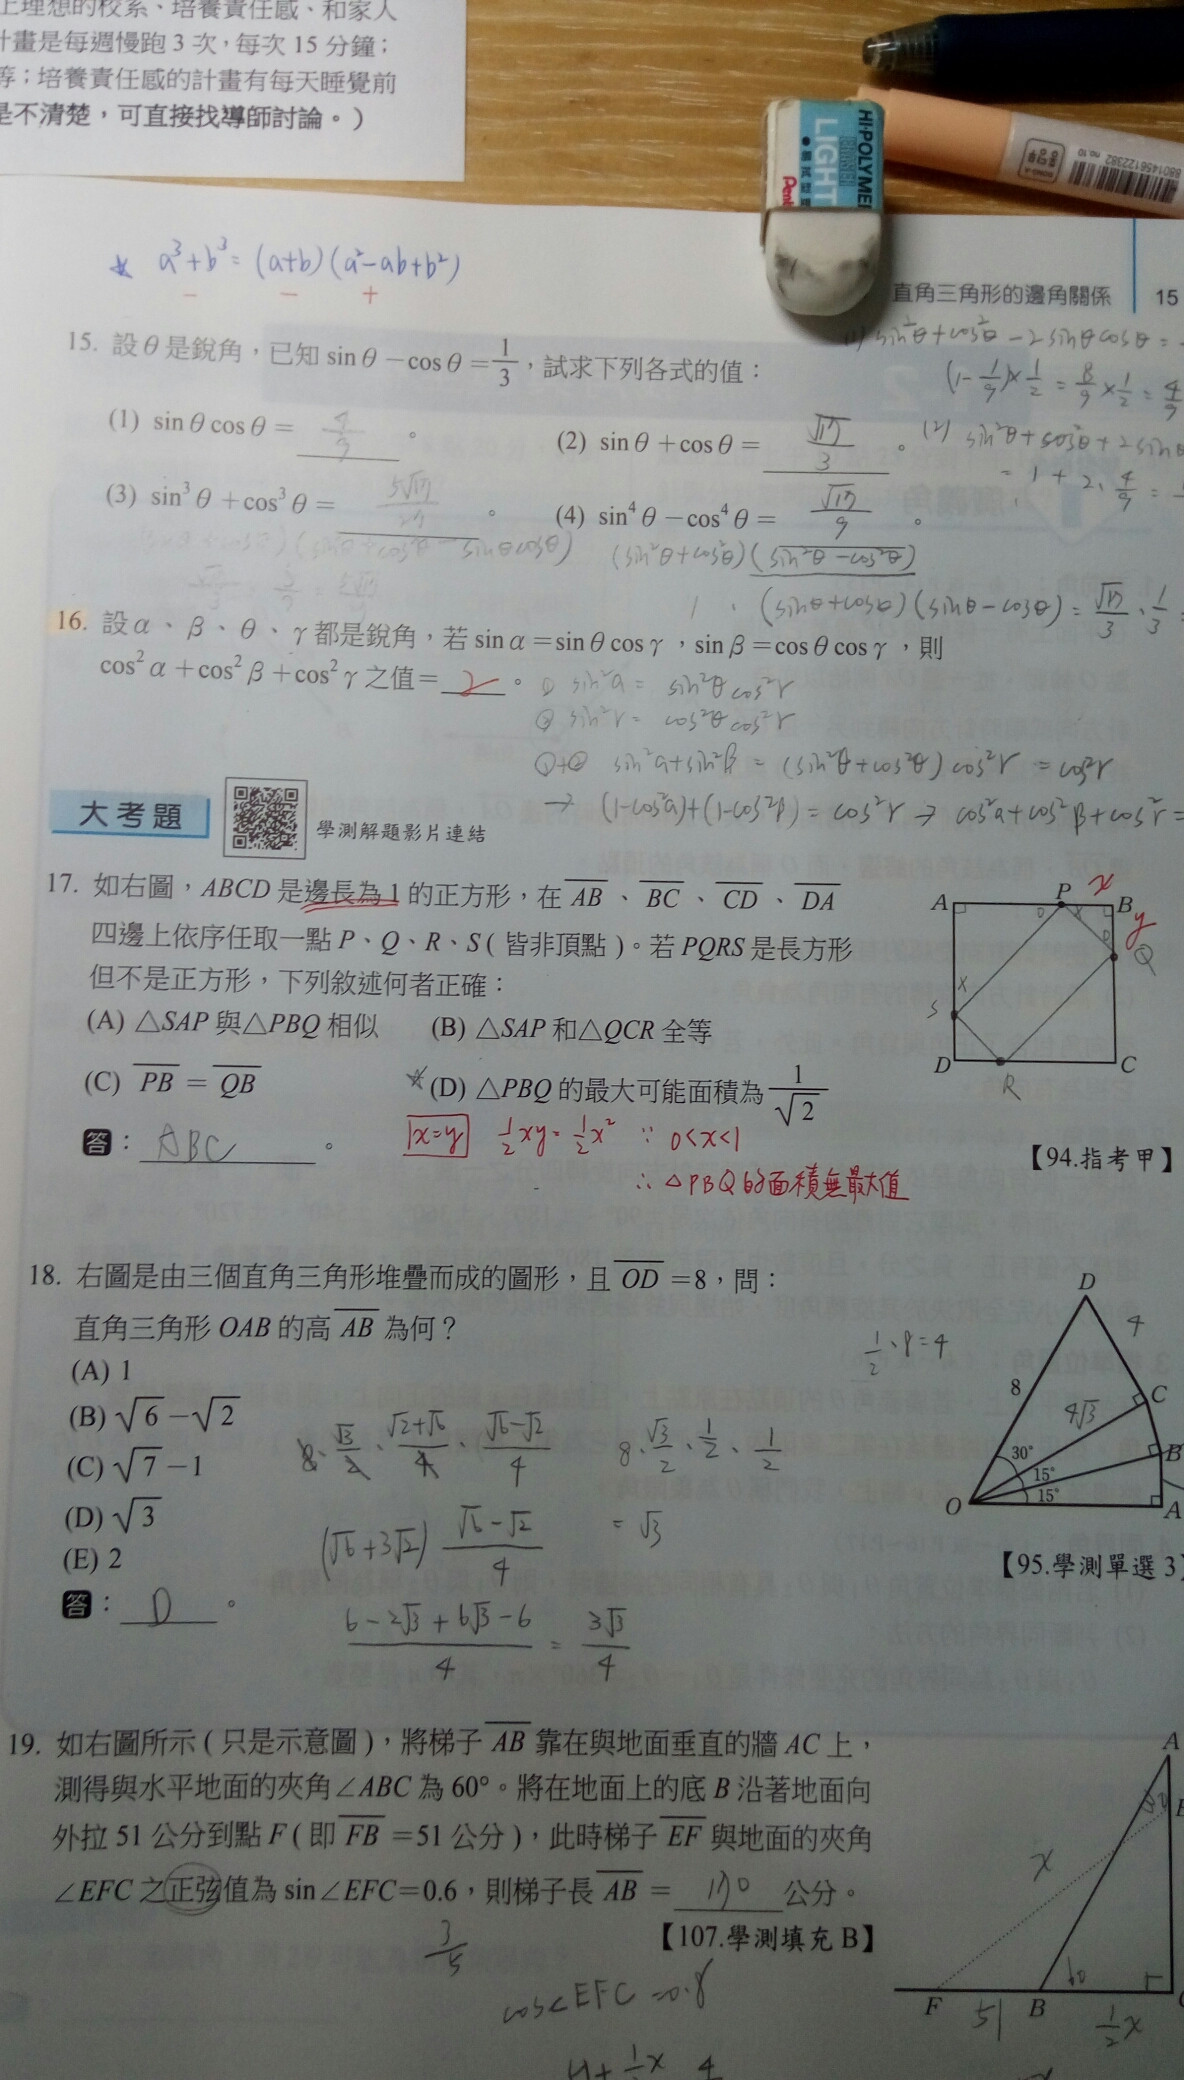 上理想的校系、培養責任感、和家人
計畫是每週慢跑 3 次,每次 15 分鐘;
等;培養責任感的計畫有每天睡覺前
是不清楚,可直接找導師討論。)
HI-POLYMER
ERASER
LIGHT
Pent
8801456122382
no.10
☆ a³+b³=(a+b)(a²-ab+b²)
- - +
直角三角形的邊角關係 15
15. 設θ是銳角,已知 sin θ-cos θ=1/3,試求下列各式的值:
(1) sin²θ+cos²θ-2sinθcosθ=
(1-1/9)×1/2=8/9×1/2=4/9
(1) sin θ cos θ= 4/9 。
(2) sin θ+cos θ= √17/3 。
(2) sin²θ+cos²θ+2sinθ
=1+2·4/9=
(3) sin³ θ+cos³ θ= 5√17/27 。
(4) sin⁴ θ-cos⁴ θ= √17/9 。
(sinθ+cosθ)(sin²θ+cos²θ-sinθcosθ)
(sin²θ+cos²θ)(sin²θ-cos²θ)
1·(sinθ+cosθ)(sinθ-cosθ)=√17/3·1/3=
16. 設α、β、θ、γ都是銳角,若 sin α=sin θ cos γ,sin β=cos θ cos γ,則
cos² α+cos² β+cos² γ之值= 2 。
① sin²a=sin²θcos²r
② sin²r=cos²θcos²r
①+② sin²a+sin²β=(sin²θ+cos²θ)cos²r=cos²r
→(1-cos²a)+(1-cos²β)=cos²r→cos²a+cos²β+cos²r=
大考題 學測解題影片連結
17. 如右圖,ABCD 是邊長為 1 的正方形,在 AB、BC、CD、DA
四邊上依序任取一點 P、Q、R、S(皆非頂點)。若 PQRS 是長方形
但不是正方形,下列敘述何者正確:
(A) △SAP 與△PBQ 相似 (B) △SAP 和△QCR 全等
(C) PB=QB ☆(D) △PBQ 的最大可能面積為 1/√2
答: ABC 。
x=y 1/2xy=1/2x² ∵ 0<x<1
∴△PBQ的面積無最大值
【94.指考甲】
A P x B
y
S x Q
D R C
18. 右圖是由三個直角三角形堆疊而成的圖形,且 OD=8,問:
直角三角形 OAB 的高 AB 為何?
(A) 1
(B) √6-√2
(C) √7-1
(D) √3
(E) 2
答: D 。
1/2·8=4
8·√3/2·√2+√6/4·√6-√2/4
8·√3/2·1/2·1/2
=√3
(√6+3√2) √6-√2/4
6-2√3+6√3-6/4=3√3/4
D
4
8
4√3
C
B
30°
15°
15°
O A
【95.學測單選 3】
19. 如右圖所示(只是示意圖),將梯子 AB 靠在與地面垂直的牆 AC 上,
測得與水平地面的夾角∠ABC 為 60°。將在地面上的底 B 沿著地面向
外拉 51 公分到點 F(即 FB=51 公分),此時梯子 EF 與地面的夾角
∠EFC 之正弦值為 sin∠EFC=0.6,則梯子長 AB= 170 公分。
3/5
【107.學測填充 B】
cos∠EFC=0.8
A
30
E
x
60
F 51 B 1/2x